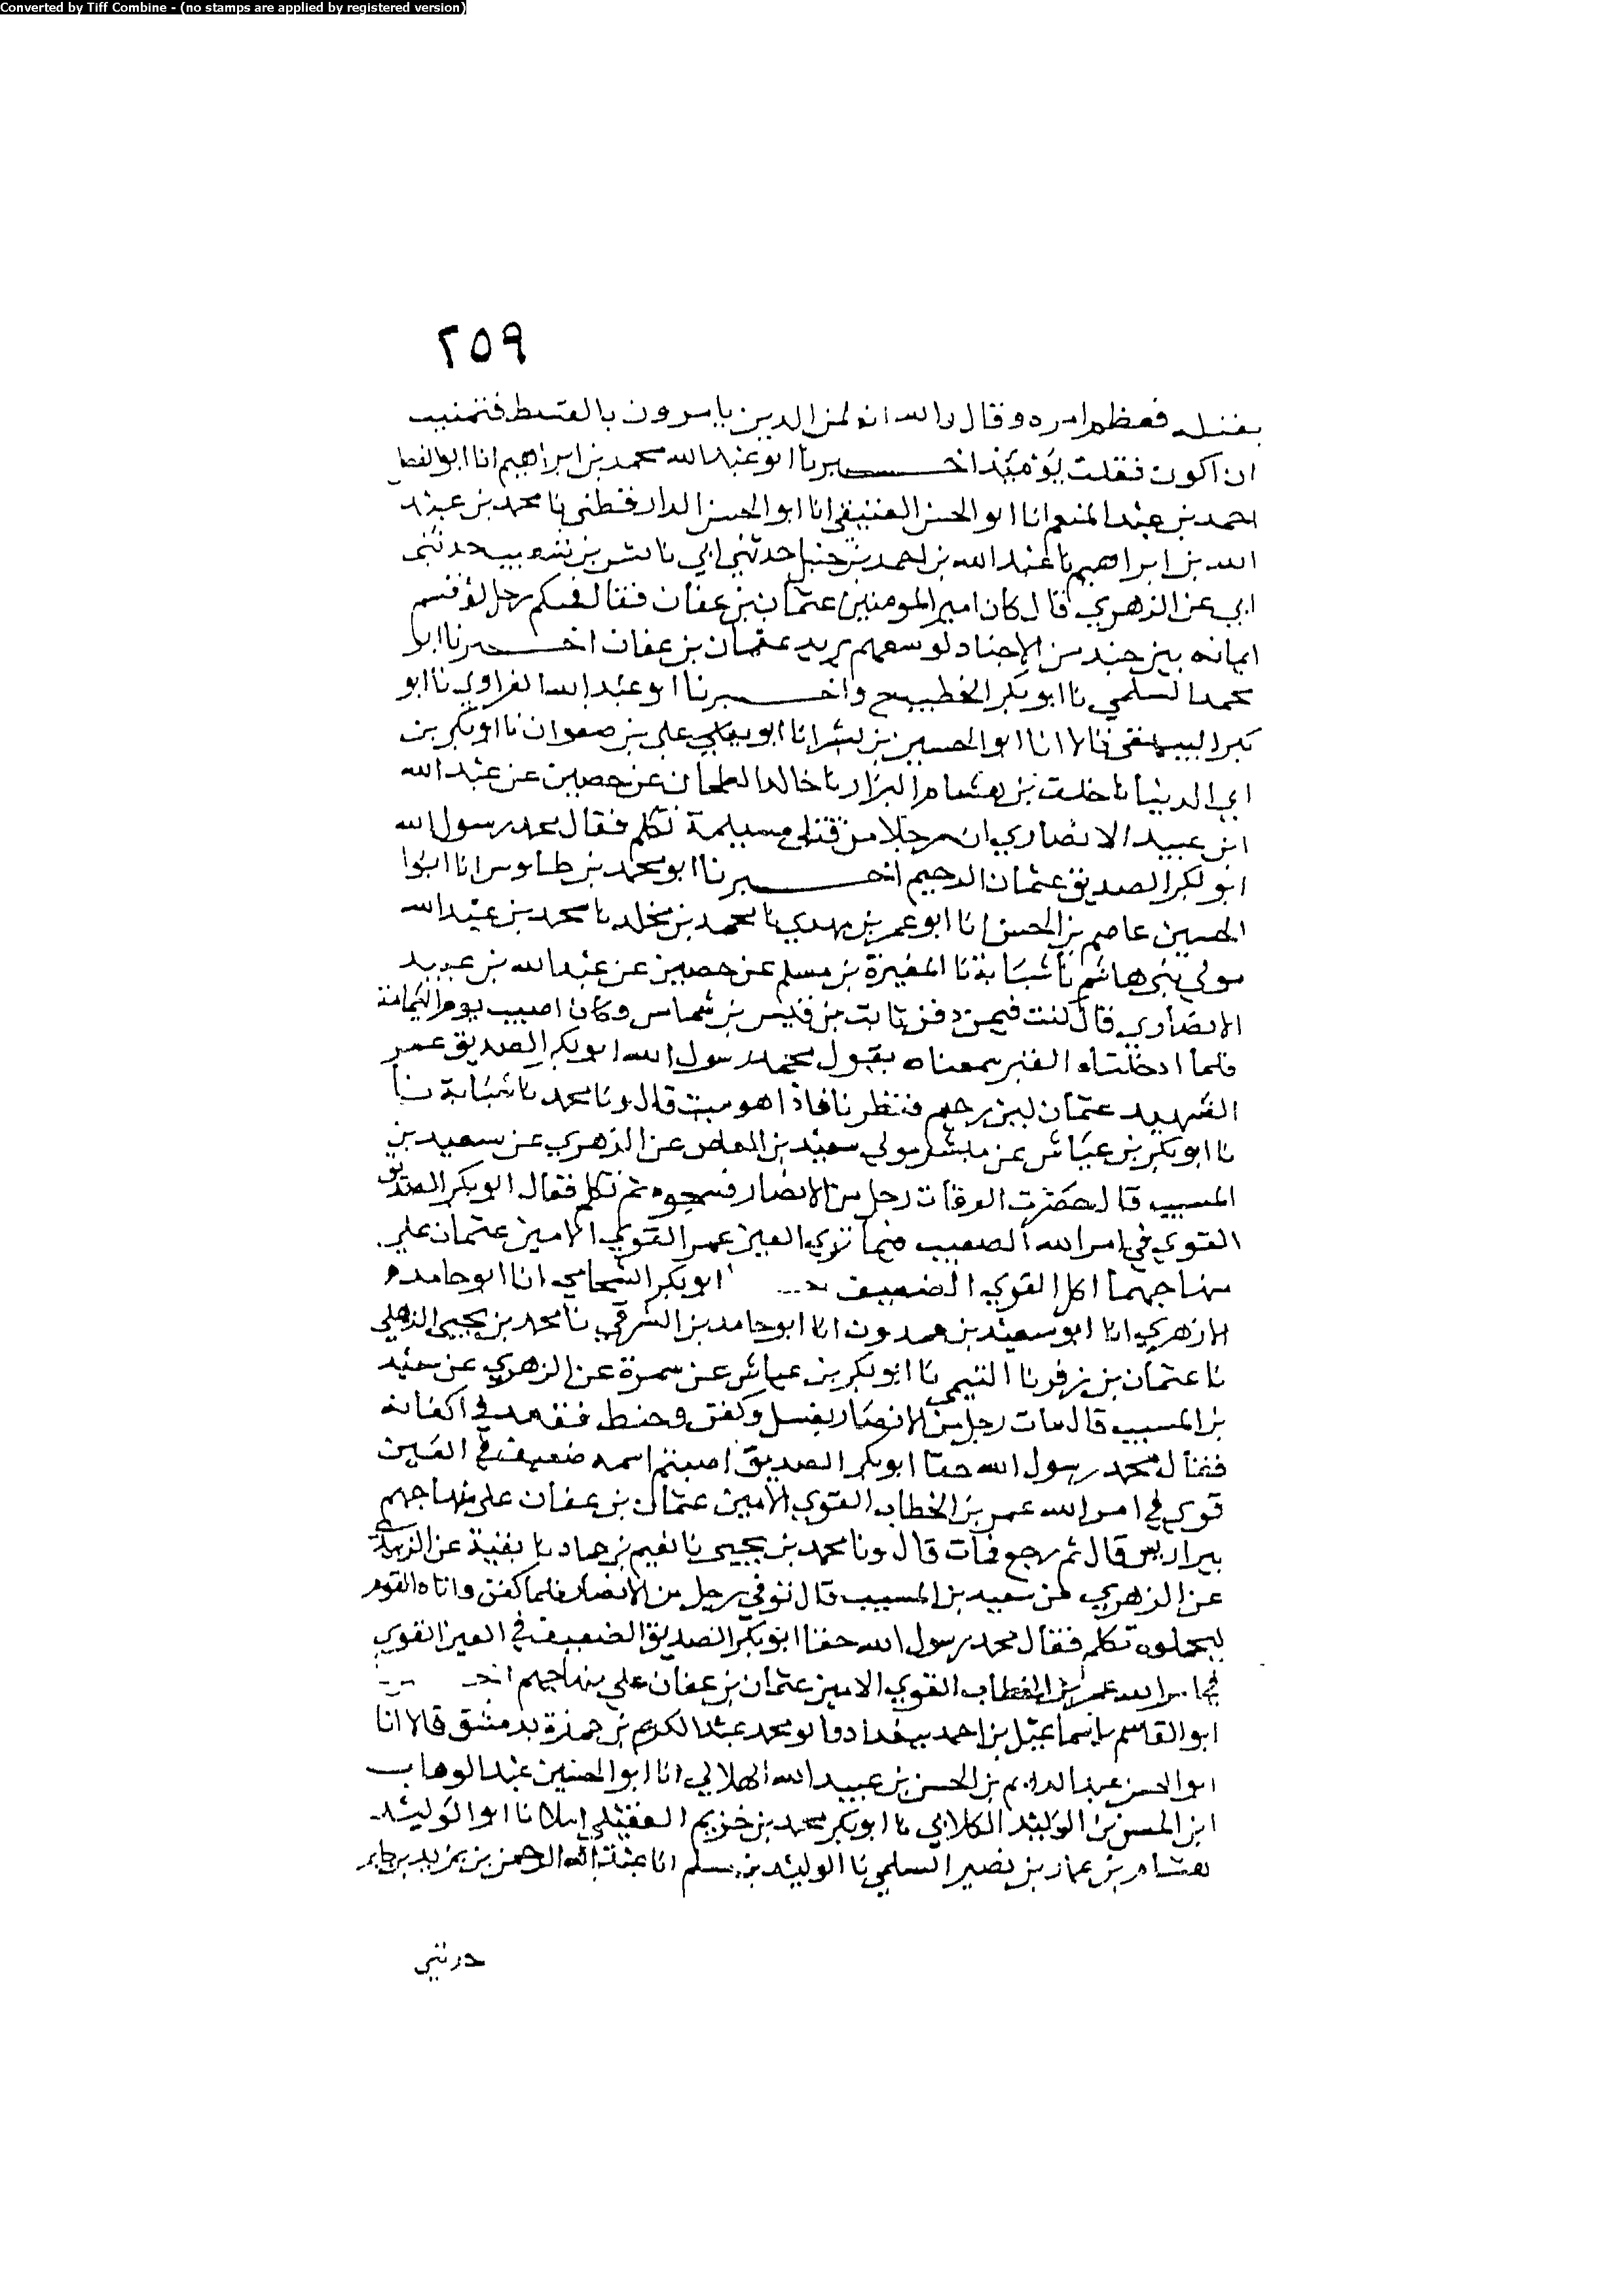 Converted by Tiff Combine - (no stamps are applied by registered version)
٢٥٩
بقتله فعظم امره وقال والله انه لمن الدين يامرون بالقسط فتمنيت
ان اكون فقلت يومئذ اخبرنا ابو عبد الله محمد بن ابراهيم انا ابو الفضل
احمد بن عبد المنعم انا ابو الحسن العتيقي انا ابو الحسن الدارقطني نا محمد بن عبد
الله بن ابراهيم نا عبد الله بن احمد بن حنبل حدثني ابي نا بشر بن شعيب حدثني
ابي عن الزهري قال كان امير المومنين عثمان بن عفان فقال فيكم رجل لو قسم
ايمانه بين جند من الاجناد لوسعهم يريد عثمان بن عفان اخبرنا ابو
محمد السلمي نا ابو بكر الخطيب ح واخبرنا ابو عبد الله الفراوي نا ابو
بكر البيهقي قالا انا ابو الحسين بن بشران انا ابو علي بن صفوان نا ابو بكر بن
ابي الدنيا نا خلف بن هشام البزار نا خالد الطحان عن حصين عن عبد الله
ابن عبيد الانصاري ان رجلا من قتلى مسيلمة تكلم فقال محمد رسول الله
ابو بكر الصديق عثمان الرحيم اخبرنا ابو محمد بن طاوس انا ابوا
الحسين عاصم بن الحسن انا ابو عمر بن مهدي نا محمد بن مخلد نا محمد بن عبد الله
مولي بني هاشم نا شبابة نا المغيرة بن مسلم عن حصين عن عبد الله بن عبيد
الانصاري قال كنت فيمن دفن ثابت بن قيس بن شماس وكان اصيب يوم اليمامة
فلما ادخلناه القبر سمعناه يقول محمد رسول الله ابو بكر الصديق عمر
الشهيد عثمان لين رحيم فنظرنا فاذا هو ميت قال ونا محمد نا شبابة نا
نا ابو بكر بن عياش عن مبشر مولي سعيد بن العاص عن الزهري عن سعيد بن
المسيب قال حضرت الوفات رجل من الانصار فسجوه ثم تكلم فقال ابو بكر الصديق
القوي في امر الله الضعيف فيما تري العين عمر القوي الامين عثمان علي
منهاجهما اكل القوي الضعيف ابو بكر الشحامي انا ابو حامد
الازهري انا ابو سعيد بن حمدون انا ابو حامد بن الشرقي نا محمد بن يحيى الذهلي
نا عثمان بن زفر نا التيمي نا ابو بكر بن عياش عن سمرة عن الزهري عن سعيد
بن المسيب قال مات رجل من الانصار يغسل وكفن وحنط فقعد في اكفانه
فقال محمد رسول الله حقا ابو بكر الصديق اصبتم اسمه ضعيف في العين
قوي في امر الله عمر بن الخطاب القوي الامين عثمان بن عفان على منهاجهم
بير اريس قال ثم رجع فمات قال ونا محمد بن يحيى نا نعيم بن حماد نا بقية عن الزبيدي
عن الزهري عن سعيد بن المسيب قال توفي رجل من الانصار فلما كفن واتاه القوم
ليحملوه تكلم فقال محمد رسول الله حقا ابو بكر الصديق الضعيف في العين القوي
في امر الله عمر بن الخطاب القوي الامين عثمان بن عفان علي منهاجهم
ابو القاسم اسماعيل بن احمد ببغداد وابو محمد عبد الكريم بن حمزة بدمشق قالا انا
ابو الحسن عبد الدايم بن الحسن بن عبيد الله الهلالي انا ابو الحسين عبد الوهاب
ابن الحسن بن الوليد الكلابي نا ابو بكر محمد بن خزيم العقيلي املا نا ابو الوليد
هشام بن عمار بن نصير السلمي نا الوليد بن مسلم انا عبد الرحمن بن يزيد بن جابر
حدثني